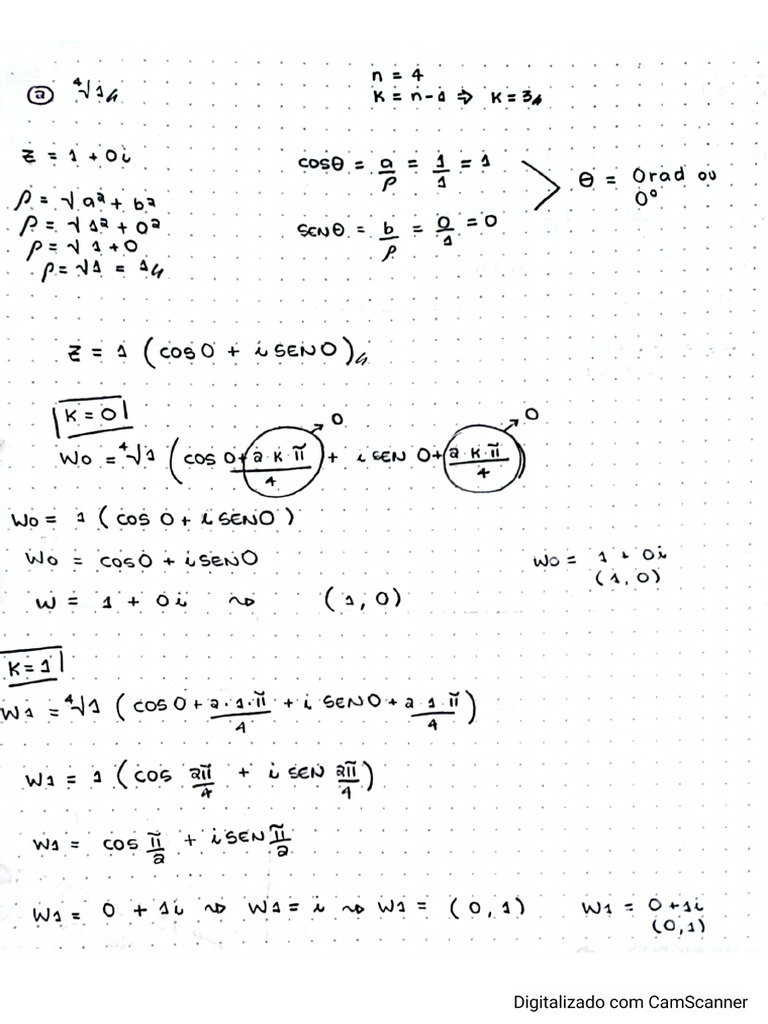 ⓐ ⁴√1
n = 4
K = n-1 ⇒ K = 3
z = 1 + 0i
ρ = √a² + b²
ρ = √1² + 0²
ρ = √1 + 0
ρ = √1 = 1
cosθ = a/ρ = 1/1 = 1
SENθ = b/ρ = 0/1 = 0
θ = 0rad ou
0°
z = 1 (cos 0 + i SEN 0)
K = 0
W0 = ⁴√1 (cos 0 + 2·K·π/4 + i SEN 0 + 2·K·π/4)
0
0
W0 = 1 (cos 0 + i SEN 0)
W0 = cos 0 + i SEN 0
W = 1 + 0i ⇝ (1, 0)
W0 = 1 + 0i
(1, 0)
K = 1
W1 = ⁴√1 (cos 0 + 2·1·π/4 + i SEN 0 + 2·1·π/4)
W1 = 1 (cos 2π/4 + i SEN 2π/4)
W1 = cos π/2 + i SEN π/2
W1 = 0 + 1i ⇝ W1 = i ⇝ W1 = (0, 1)
W1 = 0 + 1i
(0, 1)
Digitalizado com CamScanner